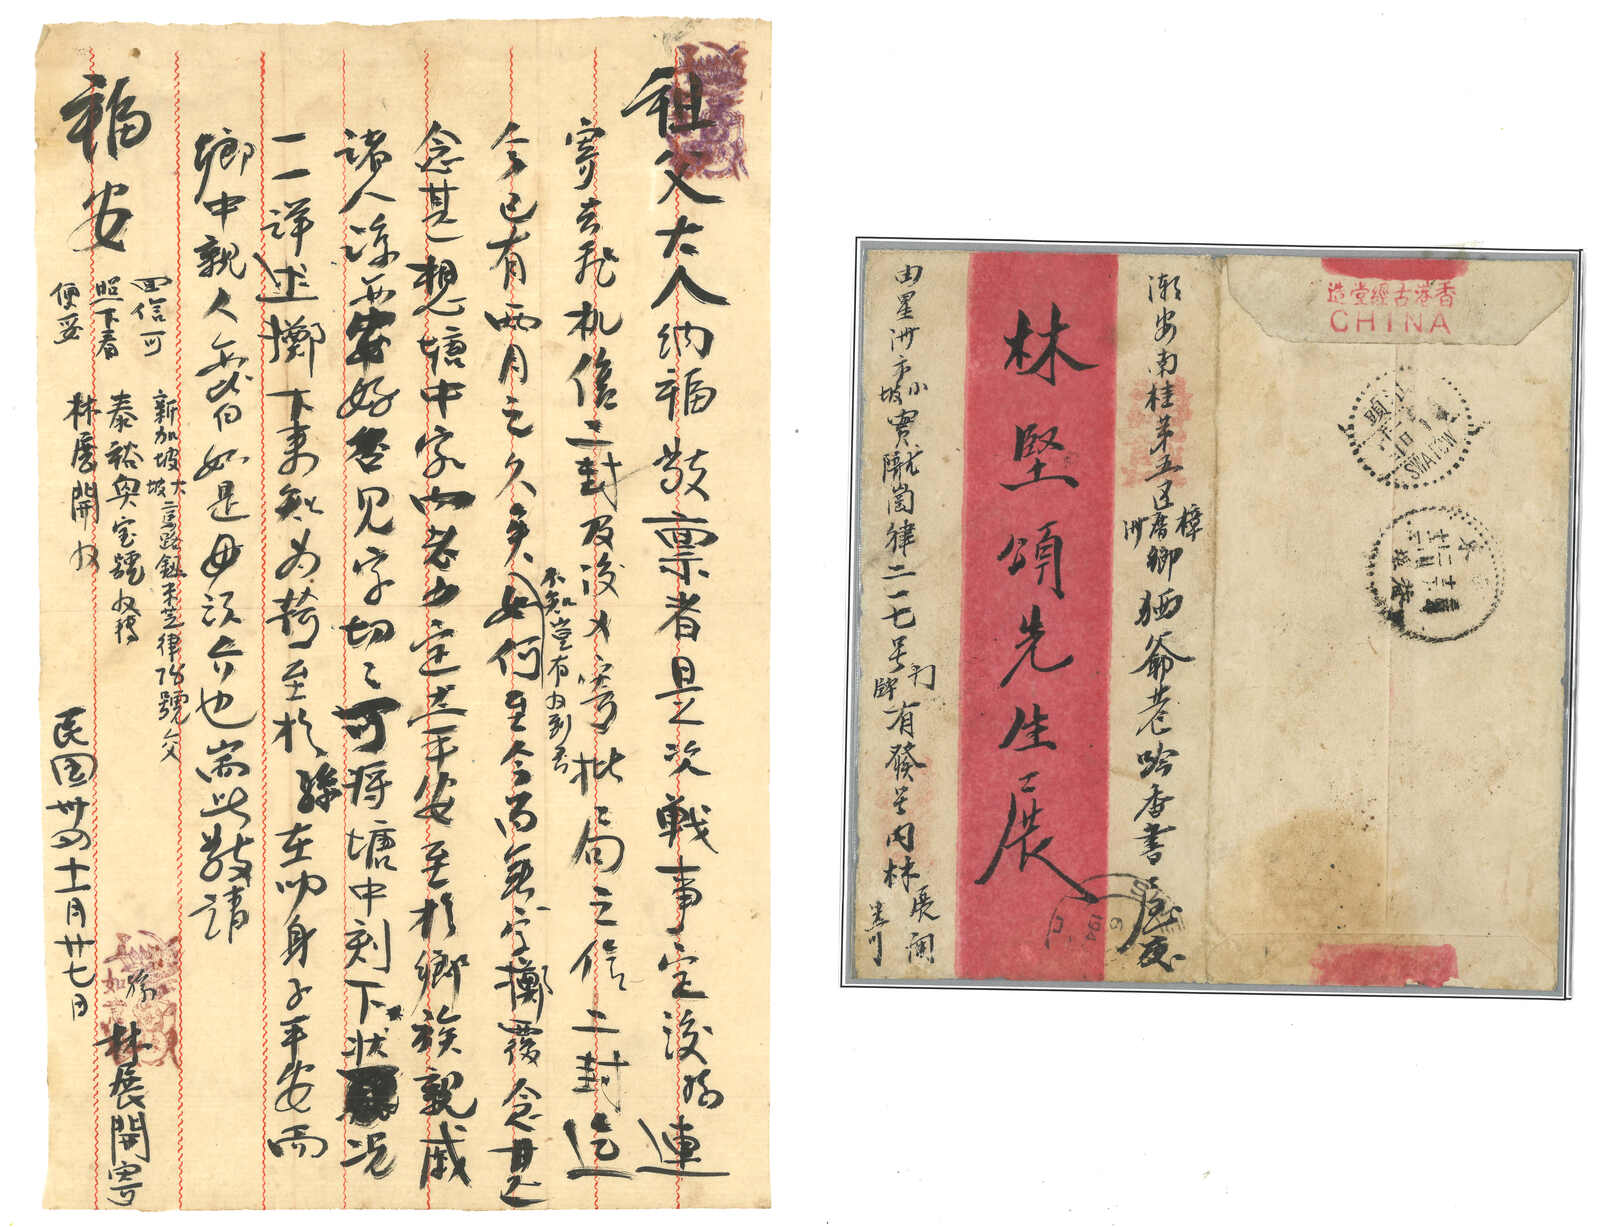 祖父大人納福敬稟者是次戰事定後孫連
寄去飛机信二封及後又寄批局之信二封迄
今已有兩月之久矣如何至今尚無字擲覆念甚
不知豈有收到否
念甚想塘中家内老少定必平安至於鄉族親戚
諸人諒必安好否見字切之可將塘中刻下狀況
一一詳述擲下來知為荷至於孫在叻身子平安而
鄉中親人無 如是毋須介也耑此敬請
福安
回信可
照下看
便妥
新加坡大坡 馬路 律 號交
泰裕興宝號收轉
林展開收
孫 林展開寄
民国卅四十一月廿七日
香港古經堂造
CHINA
潮安南桂第五区樟 鄉 爺巷 書
林堅頌先生展
由星洲市小坡實 律二一七号 有發号内林展開
SWATOW